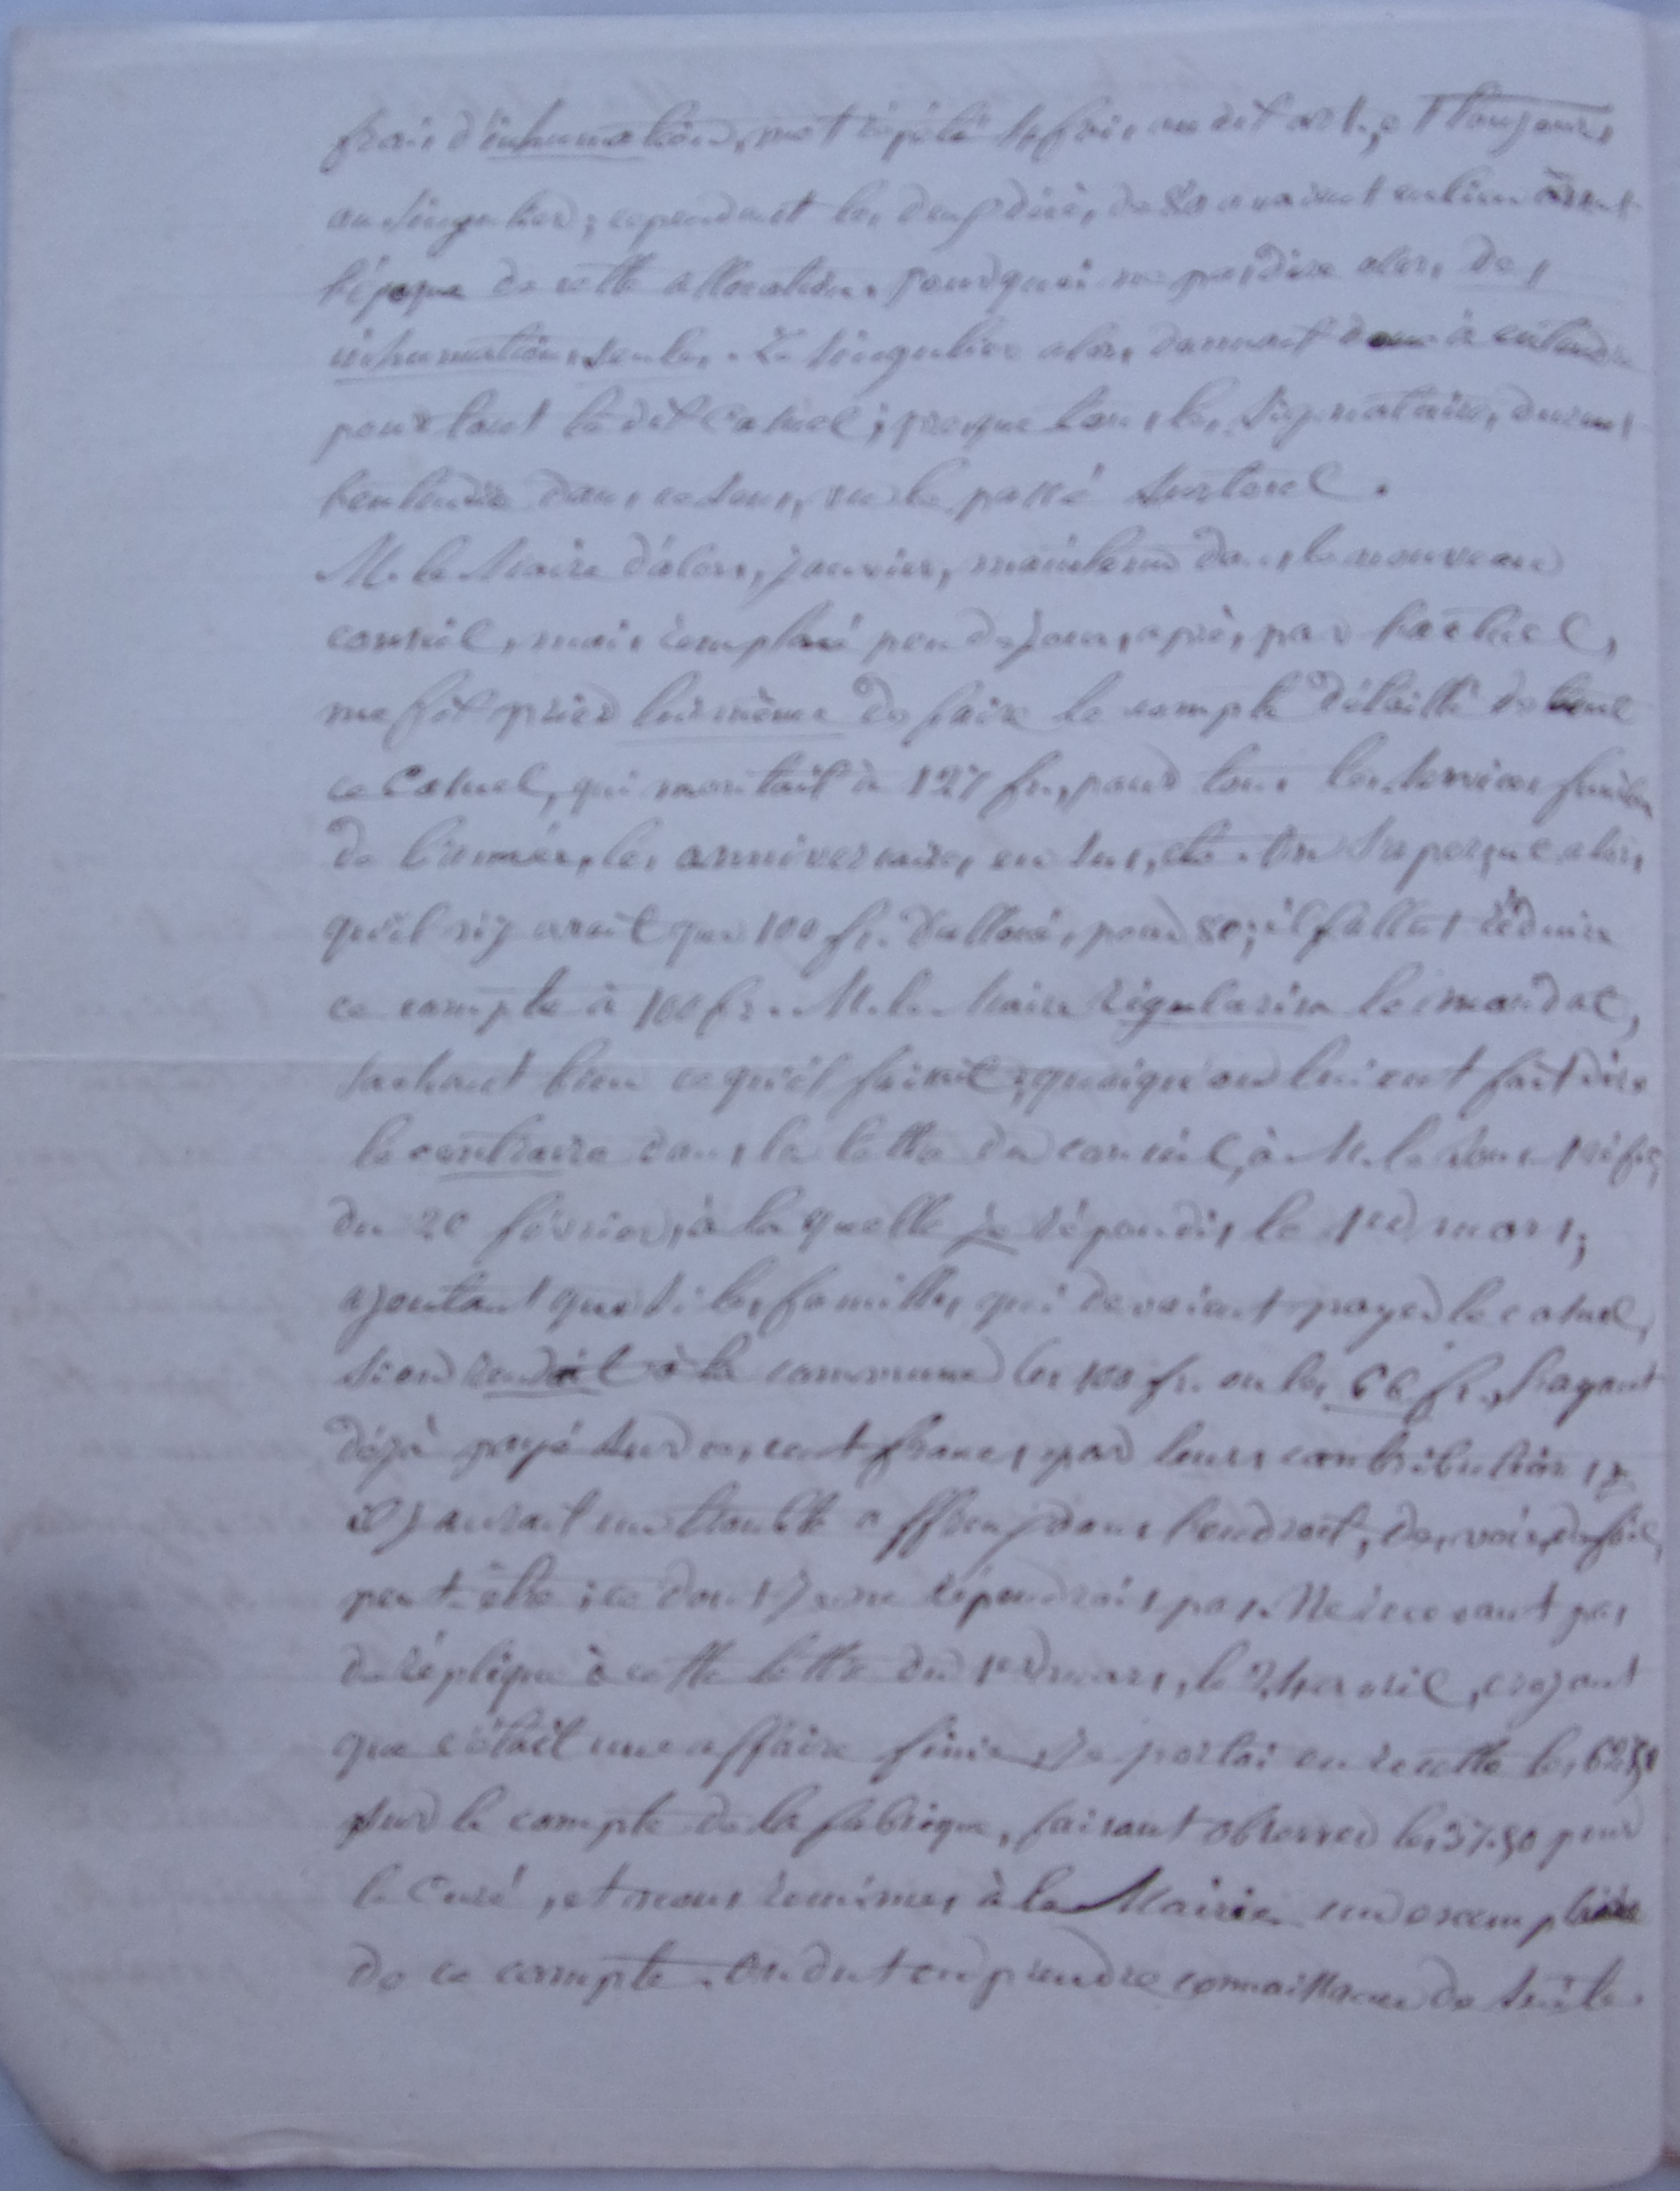 frais d'inhumation, mot répété 4 fois au dit art., et toujours
au singulier; cependant les deux décès de 80 avaient eu lieu avant
l'époque de cette allocation. Pourquoi ne pas dire alors des
inhumations seules. Le singulier alors donnait donc à entendre
pour tout le dit Casuel; presque tous les signataires durent
l'entendre dans ce sens, vu le passé surtout.
M. le Maire d'alors, janvier, maintenu dans le nouveau
conseil, mais remplacé peu de jours après par l'actuel,
me fit prier lui même de faire le compte détaillé de tout
ce Casuel, qui montait à 127 fr. pour tous les services funèbres
de l'année, les anniversaires en sus, etc. On s'aperçut alors
qu'il n'y avait que 100 fr. d'alloués pour 80; il fallut réduire
ce compte à 100 fr. M. le Maire régularisa le mandat,
sachant bien ce qu'il faisait, quoiqu'on lui eut fait dire
le contraire dans la lettre du conseil, à M. le Sous Préfet,
du 20 février, à la quelle je répondis le 1er mars;
ajoutant que si les familles qui devaient payer le casuel,
si on rendait à la commune les 100 fr. ou les 66 fr., l'ayant
déjà payé sur ces cent francs par leurs contributions,
il y aurait un trouble affreux dans l'endroit, des voies de fait,
peut-être; ce dont je ne répondrais pas. Ne recevant pas
de réplique à cette lettre du 1er mars, le 24 avril, croyant
que c'était une affaire finie, je portai en recette les 62,50
sur le compte de la fabrique, faisant observer les 37,50 pour
le Curé, et nous remîmes à la Mairie un exemplaire
de ce compte. On dut en prendre connaissance de suite.